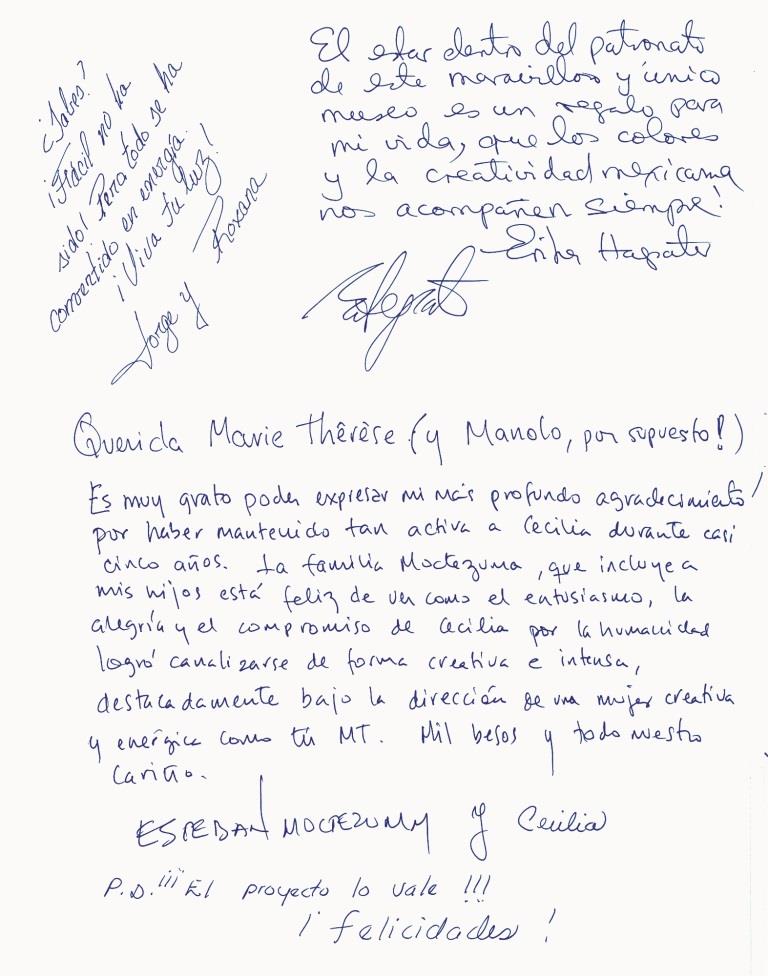 ¿Sabes?
¡Fácil no ha
sido! Pero todo se ha
convertido en energía.
¡Viva tu luz!
Jorge y Roxana
El estar dentro del patronato
de este maravilloso y único
museo es un regalo para
mi vida, que los colores
y la creatividad mexicana
nos acompañen siempre!
Querida Marie Thêrèse (y Manolo, por supuesto!)
Es muy grato poder expresar mi más profundo agradecimiento
por haber mantenido tan activa a Cecilia durante casi
cinco años. La familia Moctezuma, que incluye a
mis hijos está feliz de ver como el entusiasmo, la
alegría y el compromiso de Cecilia por la humanidad
logró canalizarse de forma creativa e intensa,
destacadamente bajo la dirección de una mujer creativa
y energica como tú MT. Mil besos y todo nuestro
cariño.
ESTEBAN MOCTEZUMA Y Cecilia
P.D. ¡¡¡ El proyecto lo vale !!!
¡ felicidades !